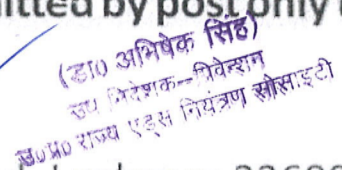 itted by post only
(डा० अभिषेक सिंह)
उप निदेशक--प्रिवेन्शन
उ०प्र० राज्य एड्स नियंत्रण सोसाइटी